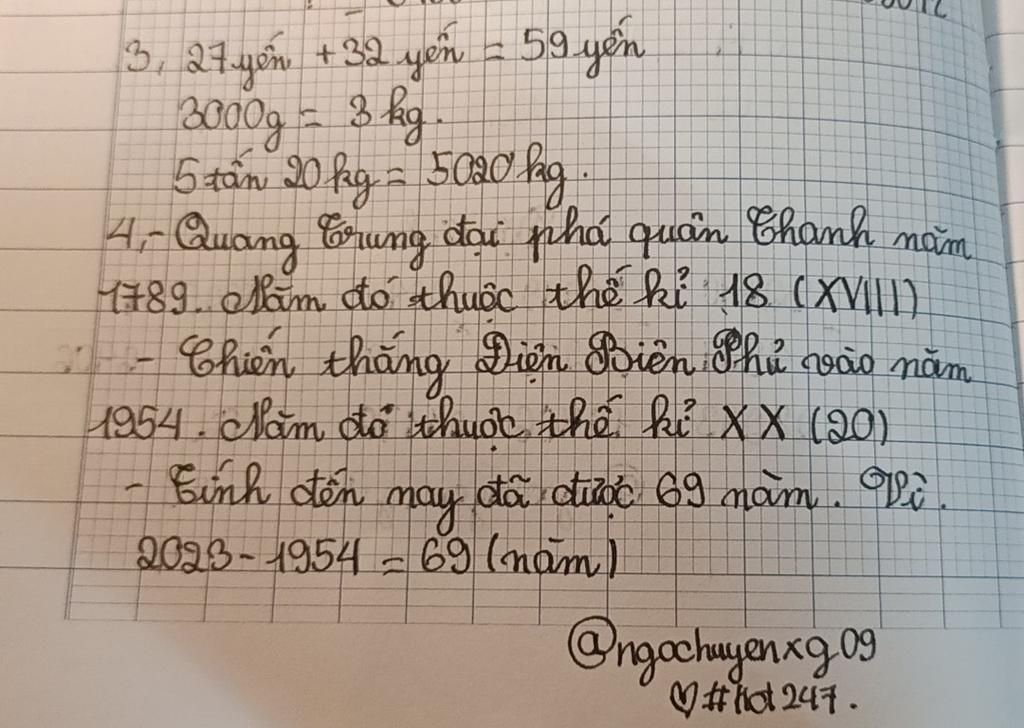 3, 27 yến + 32 yến = 59 yến
3000g = 3 kg.
5 tấn 20 kg = 5020 kg.
4,- Quang Trung đại phá quân Thanh năm
1789. Năm đó thuộc thế kỉ 18 (XVIII)
- Chiến thắng Điện Biên Phủ vào năm
1954. Năm đó thuộc thế kỉ XX (20)
- Tính đến nay đã được 69 năm. Vì.
2023 - 1954 = 69 (năm)
@ngochuyenxg09
♡#hot247.